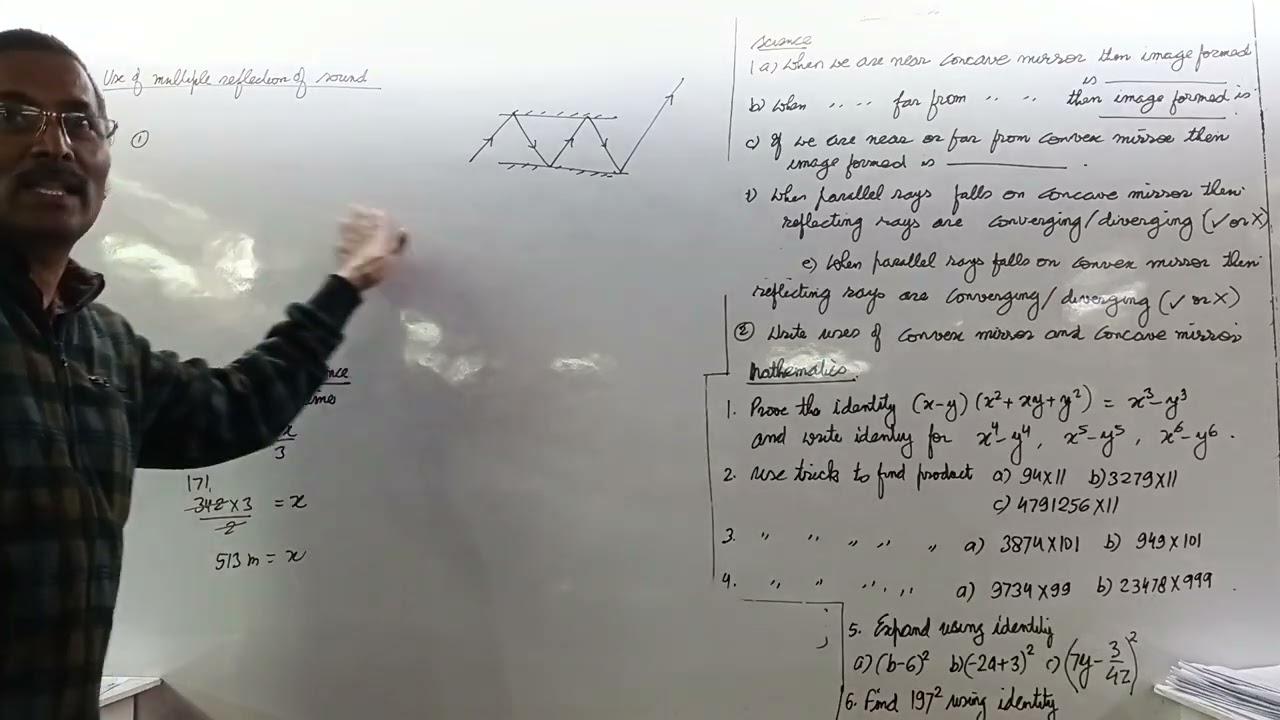 Use of multiple reflection of sound
①
nce
imes
3
171
342 × 3 = x
2
513 m = x
Science
1 a) When we are near concave mirror then image formed
is ________
b) When ,, ,, far from ,, ,, then image formed is
________
c) If we are near or far from convex mirror then
image formed is ________ .
When parallel rays falls on concave mirror then
reflecting rays are converging/diverging (✓ or X)
e) When parallel rays falls on convex mirror then
reflecting rays are converging/diverging (✓ or X)
② Write uses of convex mirror and concave mirror
Mathematics.
1. Prove the identity (x-y) (x²+xy+y²) = x³-y³
and write identiy for x⁴-y⁴, x⁵-y⁵, x⁶-y⁶.
2. Use trick to find product a) 94×11 b) 3279×11
c) 4791256×11
3. ,, ,, ,, ,, ,, a) 3874×101 b) 949×101
4. ,, ,, ,, ,, a) 9734×99 b) 23478×999 .
5. Expand using identity
a) (b-6)² b) (-2a+3)² c) (7y - 3/4z)²
6. Find 197² using identity